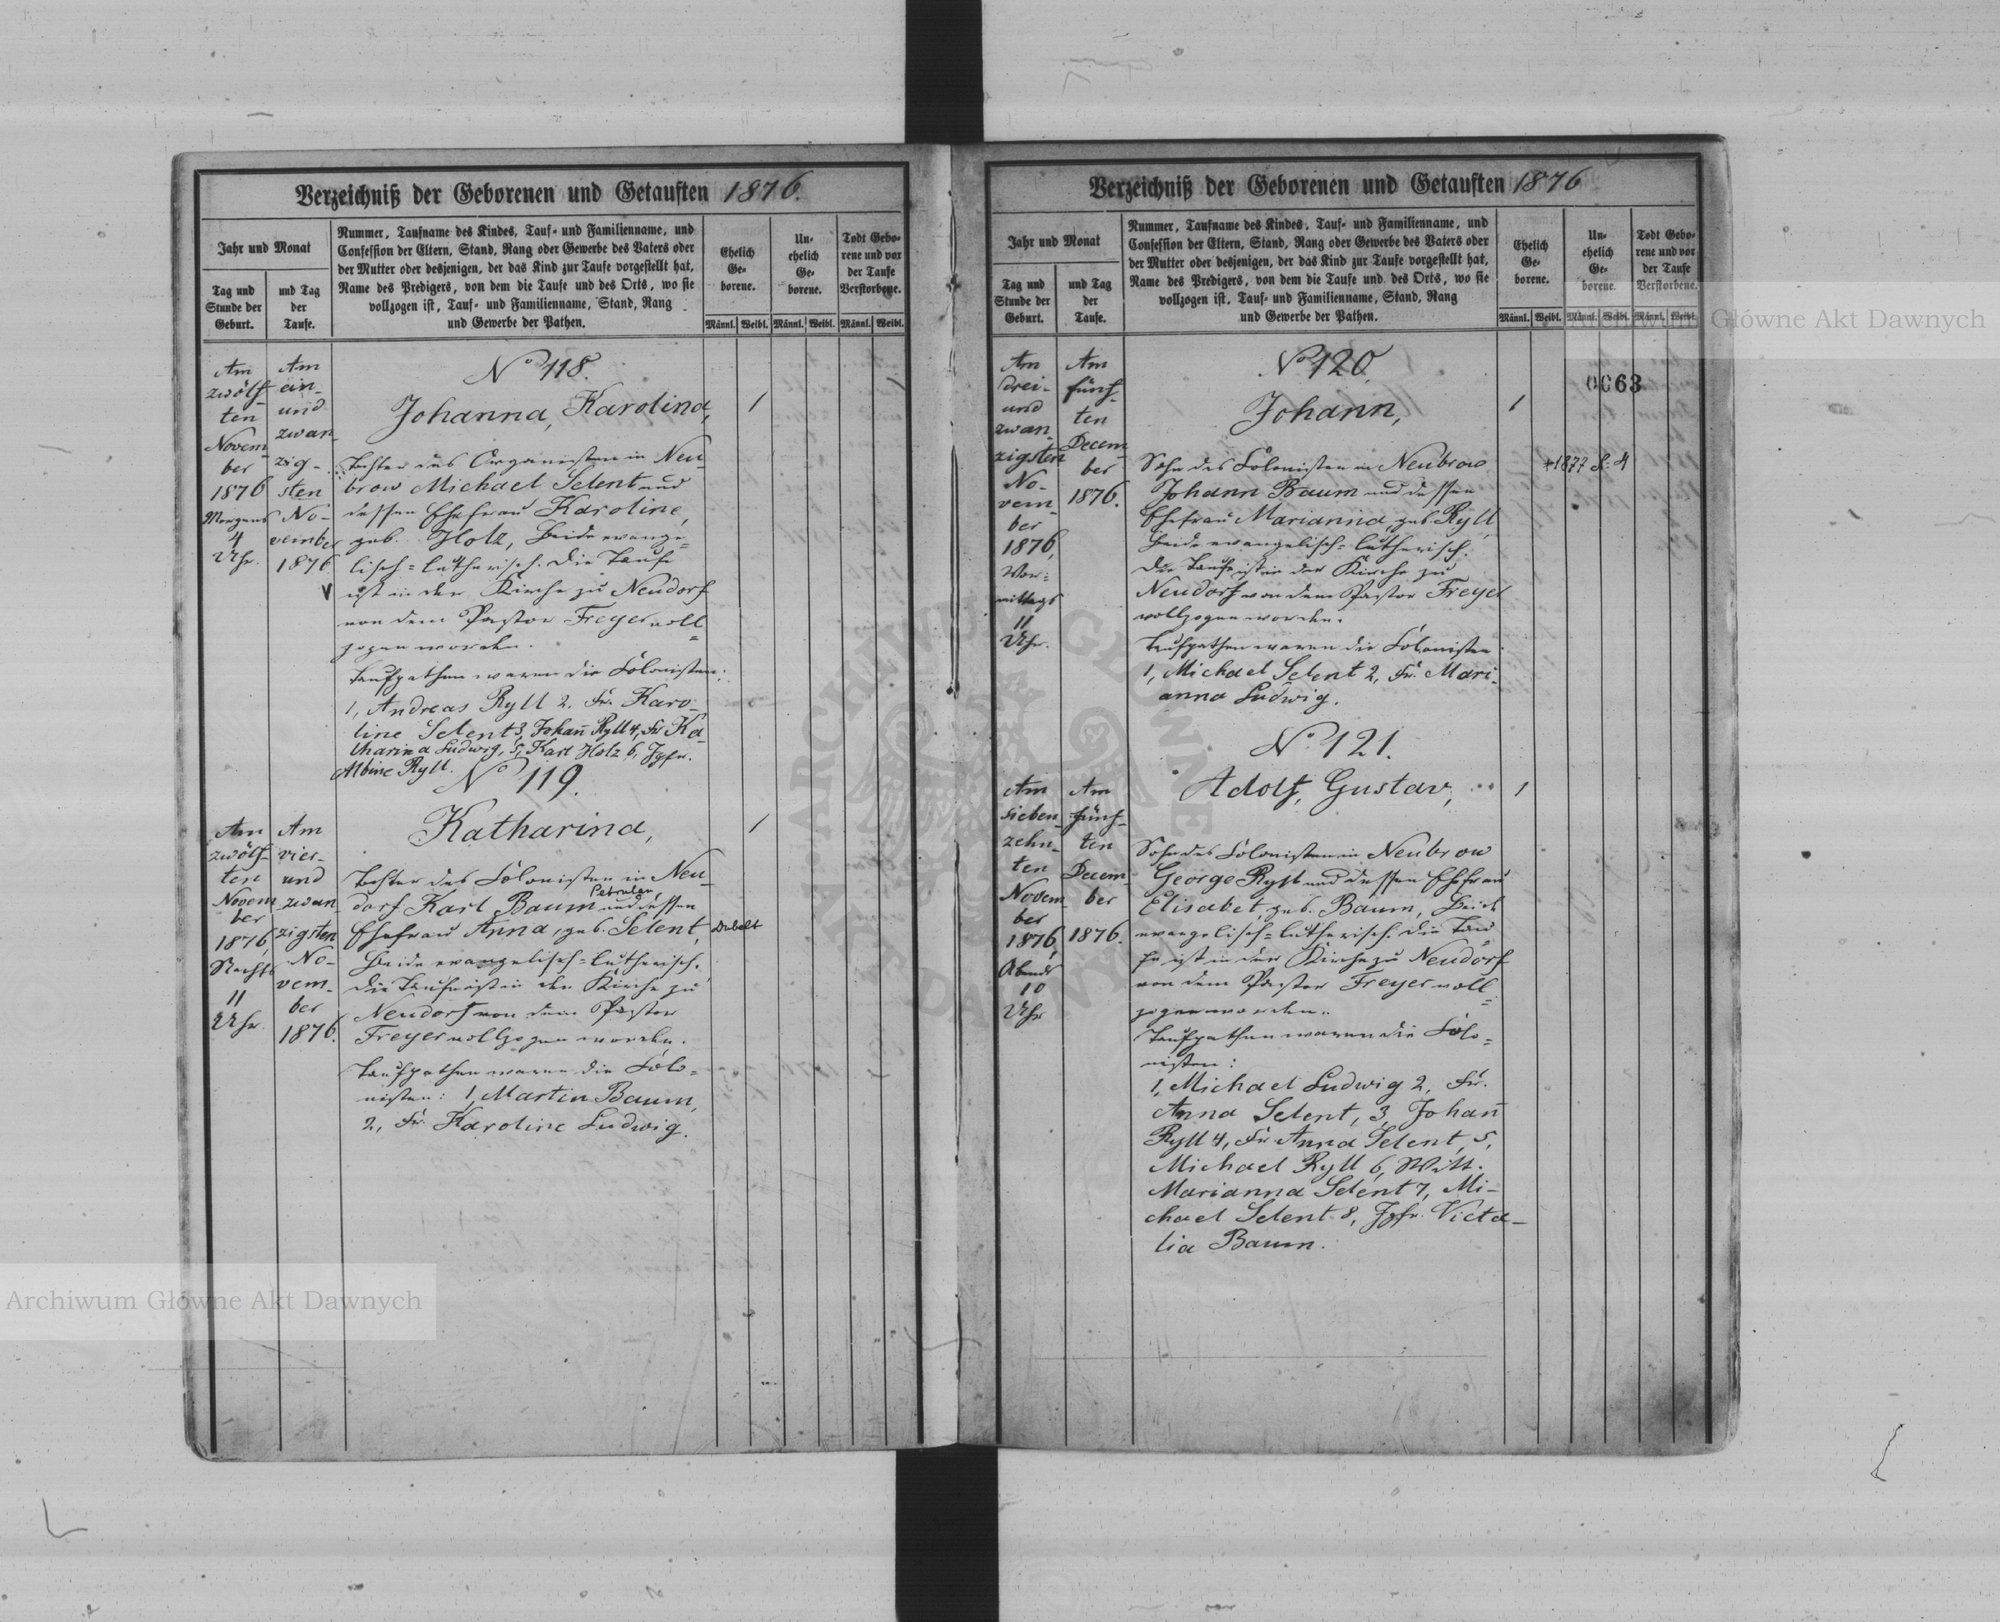 Verzeichniß der Geborenen und Getauften 1876.
Jahr und Monat
Tag und
Stunde der
Geburt.
und Tag
der
Taufe.
Nummer, Taufname des Kindes, Tauf- und Familienname, und
Confession der Eltern, Stand, Rang oder Gewerbe des Vaters oder
der Mutter oder desjenigen, der das Kind zur Taufe vorgestellt hat,
Name des Predigers, von dem die Taufe und des Orts, wo sie
vollzogen ist, Tauf- und Familienname, Stand, Rang
und Gewerbe der Pathen.
Ehelich
Ge-
borene.
Un-
ehelich
Ge-
borene.
Todt Gebo-
rene und vor
der Taufe
Verstorbene.
Männl. Weibl. Männl. Weibl. Männl. Weibl.
Am
zwölf-
ten
Novem-
ber
1876
Morgens
4
Uhr.
Am
ein-
und
zwan-
zig-
sten
No-
vember
1876
No 118.
Johanna, Karolina,
Tochter des Organisten in Neu-
brow Michael Selent und
dessen Ehefrau Karoline,
geb. Holz, Beide evange-
lisch-lutherisch. Die Taufe
ist in der Kirche zu Neudorf
von dem Pastor Freyer voll-
zogen worden.
Taufpathen waren die Colonisten:
1, Andreas Ryll 2. Fr. Karo-
line Selent 3, Johañ Ryll 4, Fr Ka-
tharina Ludwig, 5, Karl Holz 6, Jgfr.
Albine Ryll.
1
Am
zwölf-
ten
Novem-
ber
1876
Nachts
11
Uhr.
Am
vier-
und
zwan-
zigsten
No-
vem-
ber
1876.
No 119.
Katharina,
Tochter des Colonisten in Neu-
dorf Karl Baum und dessen
Ehefrau Anna, geb. Selent,
Beide evangelisch-lutherisch.
Die Taufe ist in der Kirche zu
Neudorf von dem Pastor
Freyer vollzogen worden.
Taufpathen waren die Colo-
nisten: 1, Martin Baum,
2, Fr. Karoline Ludwig.
1
Dubelt
Verzeichniß der Geborenen und Getauften 1876
Jahr und Monat
Tag und
Stunde der
Geburt.
und Tag
der
Taufe.
Nummer, Taufname des Kindes, Tauf- und Familienname, und
Confession der Eltern, Stand, Rang oder Gewerbe des Vaters oder
der Mutter oder desjenigen, der das Kind zur Taufe vorgestellt hat,
Name des Predigers, von dem die Taufe und des Orts, wo sie
vollzogen ist, Tauf- und Familienname, Stand, Rang
und Gewerbe der Pathen.
Ehelich
Ge-
borene.
Un-
ehelich
Ge-
borene.
Todt Gebo-
rene und vor
der Taufe
Verstorbene.
Männl. Weibl. Männl. Weibl. Männl. Weibl.
0063
Am
drei-
und
zwan-
zigsten
No-
vem-
ber
1876,
Vor-
mittags
11
Uhr.
Am
fünf-
ten
Decem-
ber
1876.
No 120.
Johann,
Sohn des Colonisten in Neubrow
Johann Baum und dessen
Ehefrau Marianna, geb. Ryll,
Beide evangelisch-lutherisch.
Die Taufe ist in der Kirche zu
Neudorf von dem Pastor Freyer
vollzogen worden.
Taufpathen waren die Colonisten:
1, Michael Selent 2, Fr. Mari-
anna Ludwig.
1
+ 1877
Am
sieben-
zehn-
ten
Novem-
ber
1876,
Abends
10
Uhr
Am
fünf-
ten
Decem-
ber
1876.
No 121.
Adolf, Gustav,
Sohn des Colonisten in Neubrow
George Ryll und dessen Ehefrau
Elisabet, geb. Baum, Beide
evangelisch-lutherisch. Die Tau-
fe ist in der Kirche zu Neudorf
von dem Pastor Freyer voll-
zogen worden.
Taufpathen waren die Colo-
nisten:
1, Michael Ludwig 2, Fr.
Anna Selent, 3, Johañ
Ryll 4, Fr. Anna Selent, 5,
Michael Ryll 6, Witt.
Marianna Selent 7, Mi-
chael Selent 8, Jgfr. Victo-
lia Baum.
1
Archiwum Główne Akt Dawnych
Archiwum Główne Akt Dawnych
ARCHIWUM GŁÓWNE AKT DAWNYCH